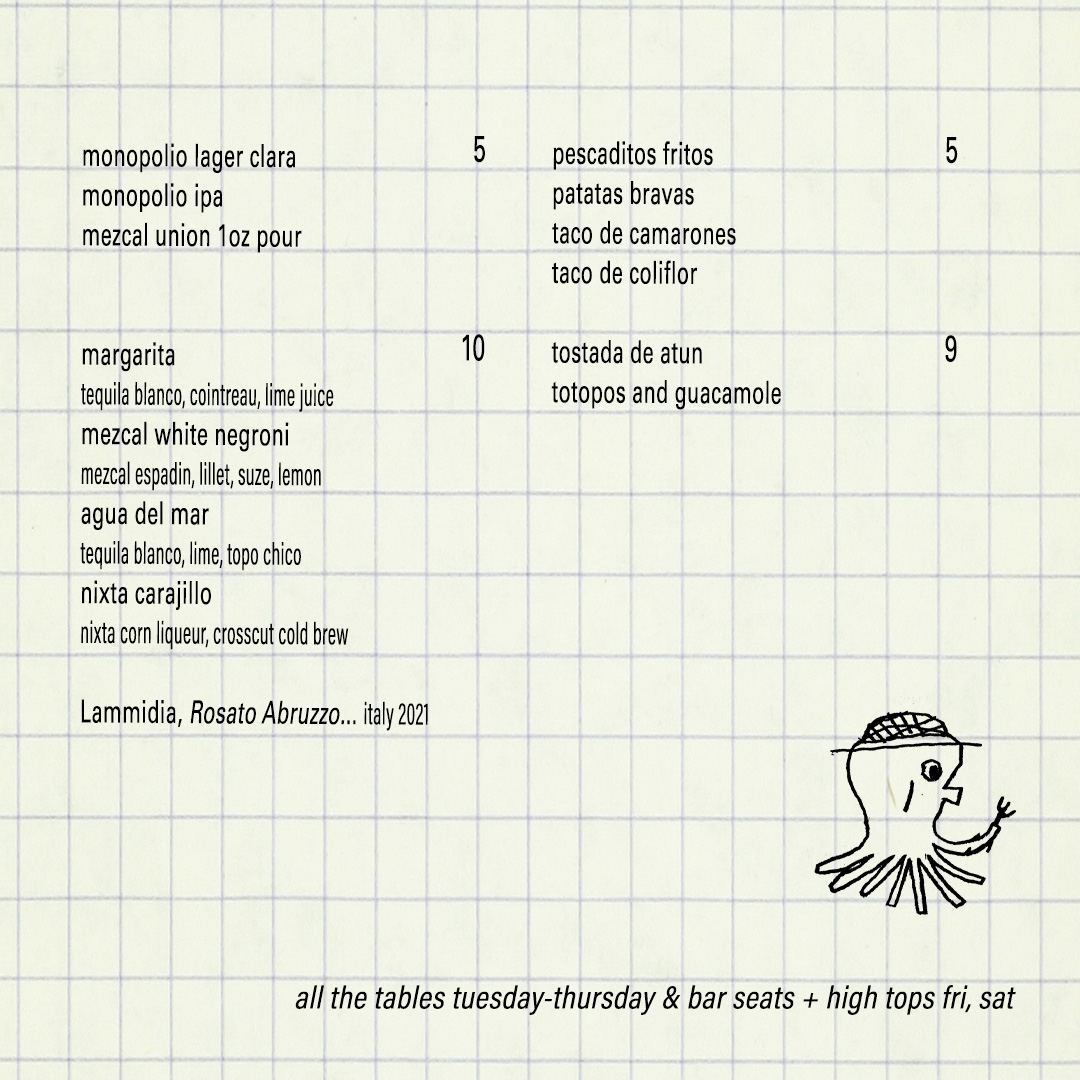 monopolio lager clara 5
monopolio ipa
mezcal union 1oz pour
margarita 10
tequila blanco, cointreau, lime juice
mezcal white negroni
mezcal espadin, lillet, suze, lemon
agua del mar
tequila blanco, lime, topo chico
nixta carajillo
nixta corn liqueur, crosscut cold brew
Lammidia, Rosato Abruzzo... italy 2021
pescaditos fritos 5
patatas bravas
taco de camarones
taco de coliflor
tostada de atun 9
totopos and guacamole
all the tables tuesday-thursday & bar seats + high tops fri, sat